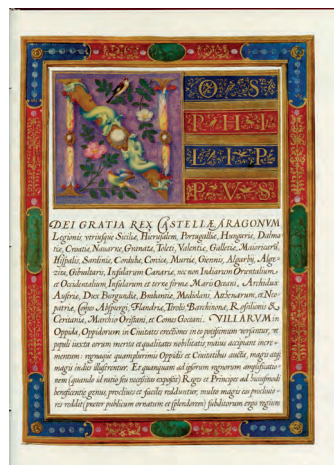 NOS
PHI
LIP
PVS
DEI GRATIA REX CASTELLÆ ARAGONVM
Legionis, vtriusque Siciliæ, Hierusalem, Portugalliæ, Hungariæ, Dalma
tiæ, Croatiæ, Nauarræ, Granatæ, Toleti, Valentiæ, Galletiæ, Maioricarũ
Hispalis, Sardiniæ, Cordubæ, Corsicæ, Murtiæ, Giennis, Algarby, Alge-
ziræ, Gibraltaris, Insularum Canariæ, nec non Indiarum Orientalium
et Occidentalium, Insularum et terræ firmæ Maris Oceani, Archidux
Austriæ, Dux Burgundiæ, Brabantiæ, Mediolani, Athenarum, et Neo-
patriæ, Comes Abspurgi, Flandriæ, Tirolis Barchinonæ, Rosilionis &
Ceritaniæ, Marchio Oristani, et Comes Goceani. VILLARVM in
Oppida, Oppidorum in Ciuitates erectiones in eo potissimum versantur, vt
populi iuxta eorum merita et qualitates nobilitatis, maius accipiant incre-
mentum: regnaque quamplurimis Oppidis et Ciuitatibus aucta, magis atque
magis indies illustrentur. Et quanquam ad ipsorum regnorum amplificatio-
nem (quando id ratio seu necessitas exposcit) Reges et Principes ad huiusmodi
beneficentiæ genus, procliues et faciles redduntur, multo magis eos procliui-
res reddit (præter publicum ornatum et splendorem) subditorum erga regium